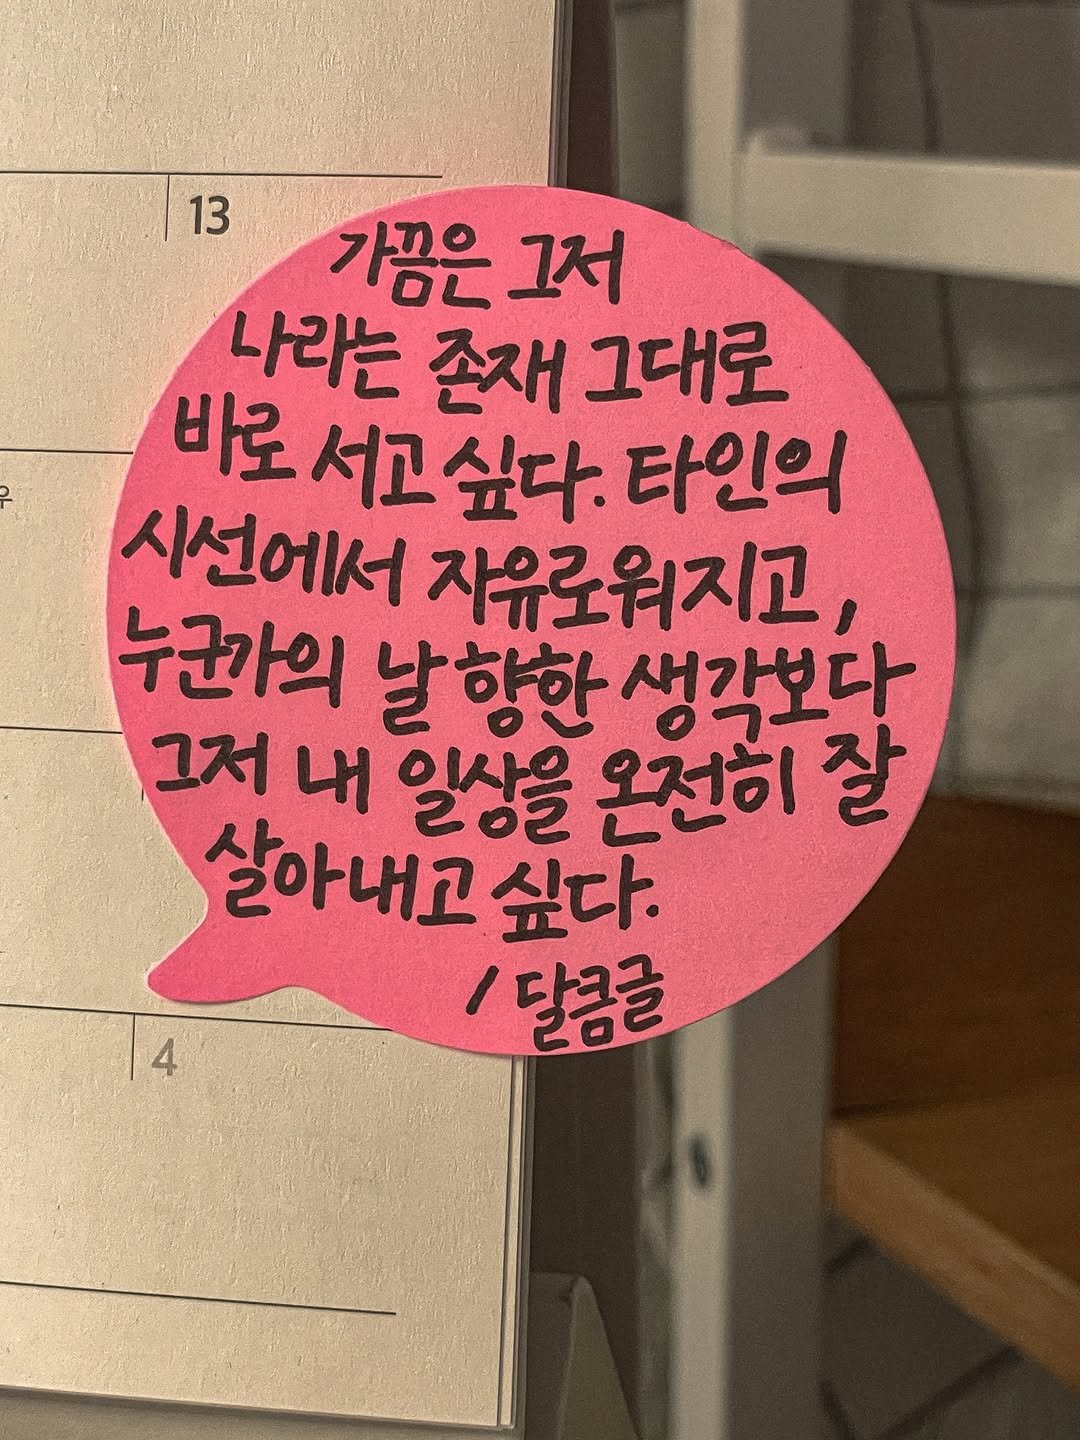 13
가끔은 그저
나라는 존재 그대로
바로 서고 싶다. 타인의
우
시선에서 자유로워지고,
누군가의 날 향한 생각보다
그저 내 일상을 온전히 잘
살아내고 싶다.
/ 달콤글
4